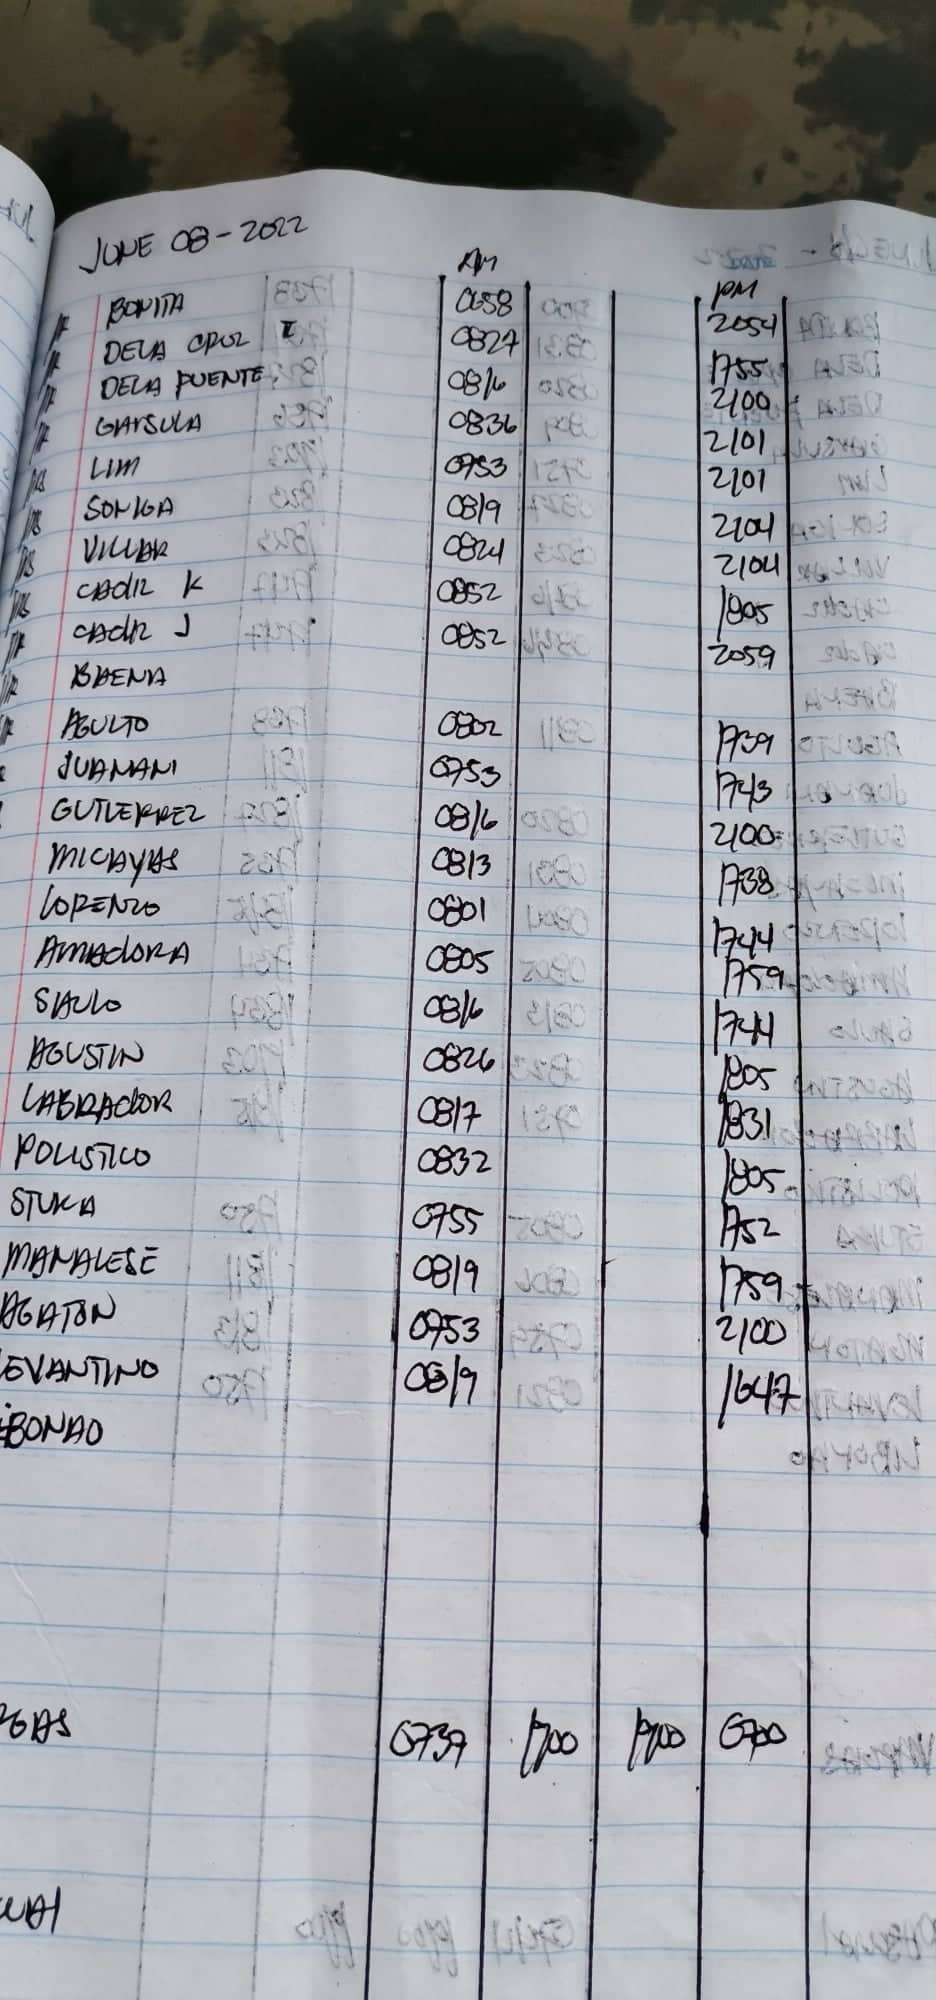 JUNE 08-2022
AM PM
BONITA 0658 2054
DELA CRUZ I 0827 1755
DELA PUENTE 0816 2100
GARSULA 0836 2101
LIM 0753 2101
SONIGA 0819 2104
VILLAR 0824 2104
CADIZ K 0852 1805
CADIZ J 0852 2059
BAENA
AGULTO 0802 1739
JUAMANI 0753 1743
GUTIERREZ 0816 2100
MICAYAS 0813 1738
LORENZO 0801 1744
AMADORA 0805 1759
SAULO 0816 1744
AGUSTIN 0826 1805
LABRADOR 0817 1831
POLISTICO 0832 1805
STUKA 0755 1752
MANALESE 0819 1759
AGATON 0753 2100
EVANTINO 0819 1647
BONAO
GAS 0739 1700 1900 0700